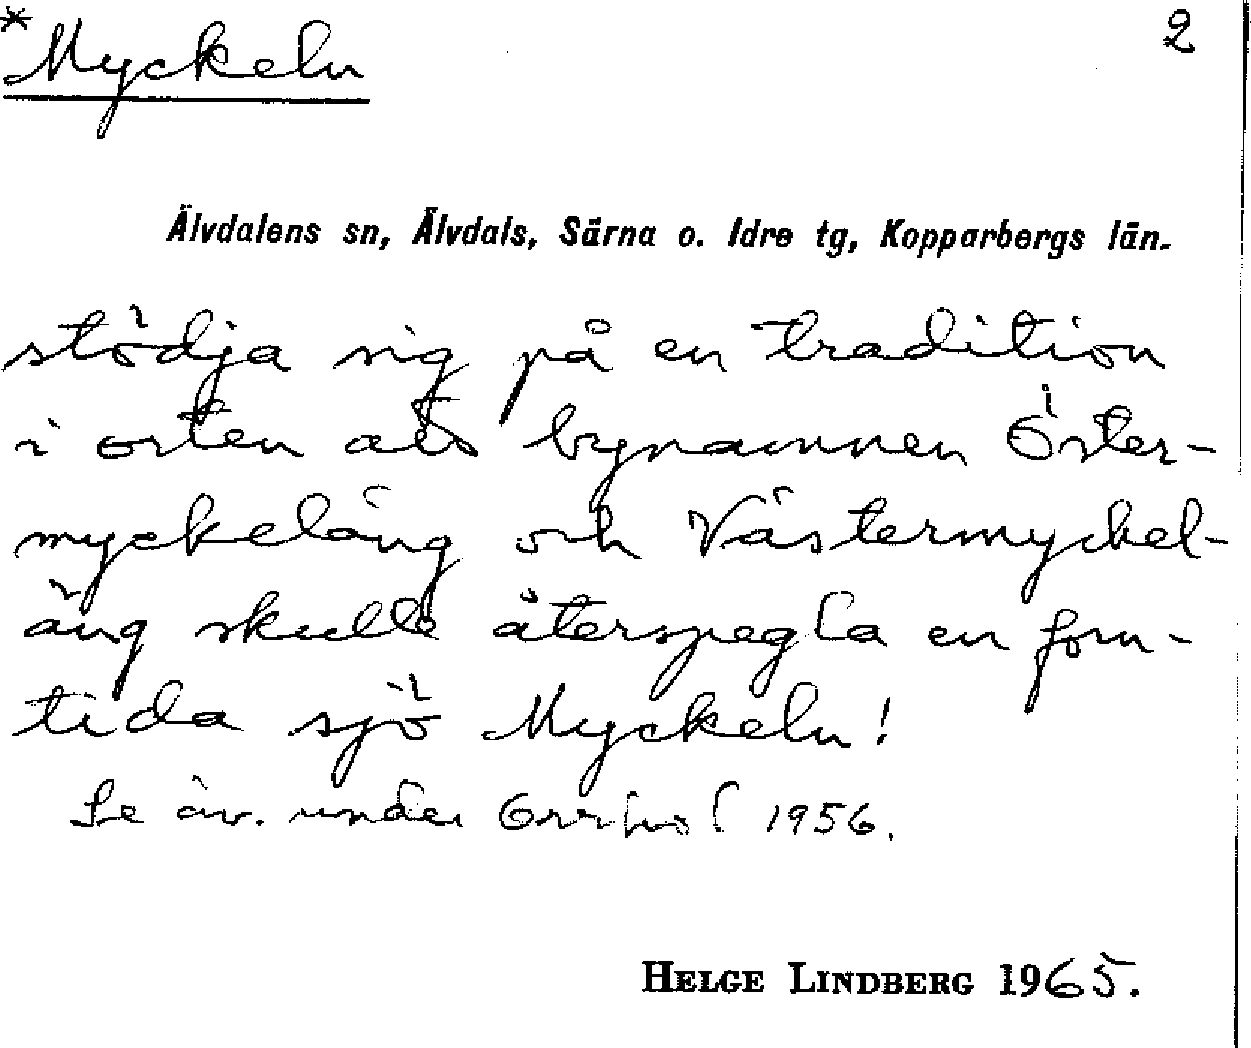 *Myckeln 2
Älvdalens sn, Älvdals, Särna o. Idre tg, Kopparbergs län.
stödja sig på en tradition
i orten att bynamnen Öster-
myckeläng och Västermyckel-
äng skulle återspegla en forn-
tida sjö Myckeln!
Se äv. under Orrhol 1956.
HELGE LINDBERG 1965.